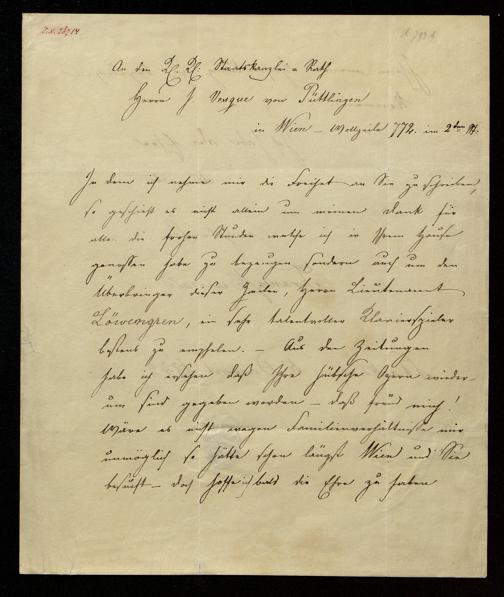 An den K. K. Staatskanzlei-Rath
Herrn J. Vesque von Püttlingen
in Wien – Wollzeile 772. im 2ten St.
In dem ich nehme mir die Freiheit an Sie zu schreiben,
so geschieht es nicht allein um meinen Dank für
alle die frohen Stunden welche ich in Ihrem Hause
genossen habe zu bezeugen sondern auch um den
Überbringer dieser Zeilen, Herrn Lieutenant
Löwengren, ein sehr talentvoller Klavierspieler
bestens zu empfehlen. – Aus den Zeitungen
habe ich ersehen daß Ihre hübsche Opern wieder-
um sind gegeben worden – daß freud mich!
Wäre es nicht wegen Familienverhältnisse mir
unmöglich so hätte schon längst Wien und Sie
besucht – doch hoffe ich bald die Ehre zu haben